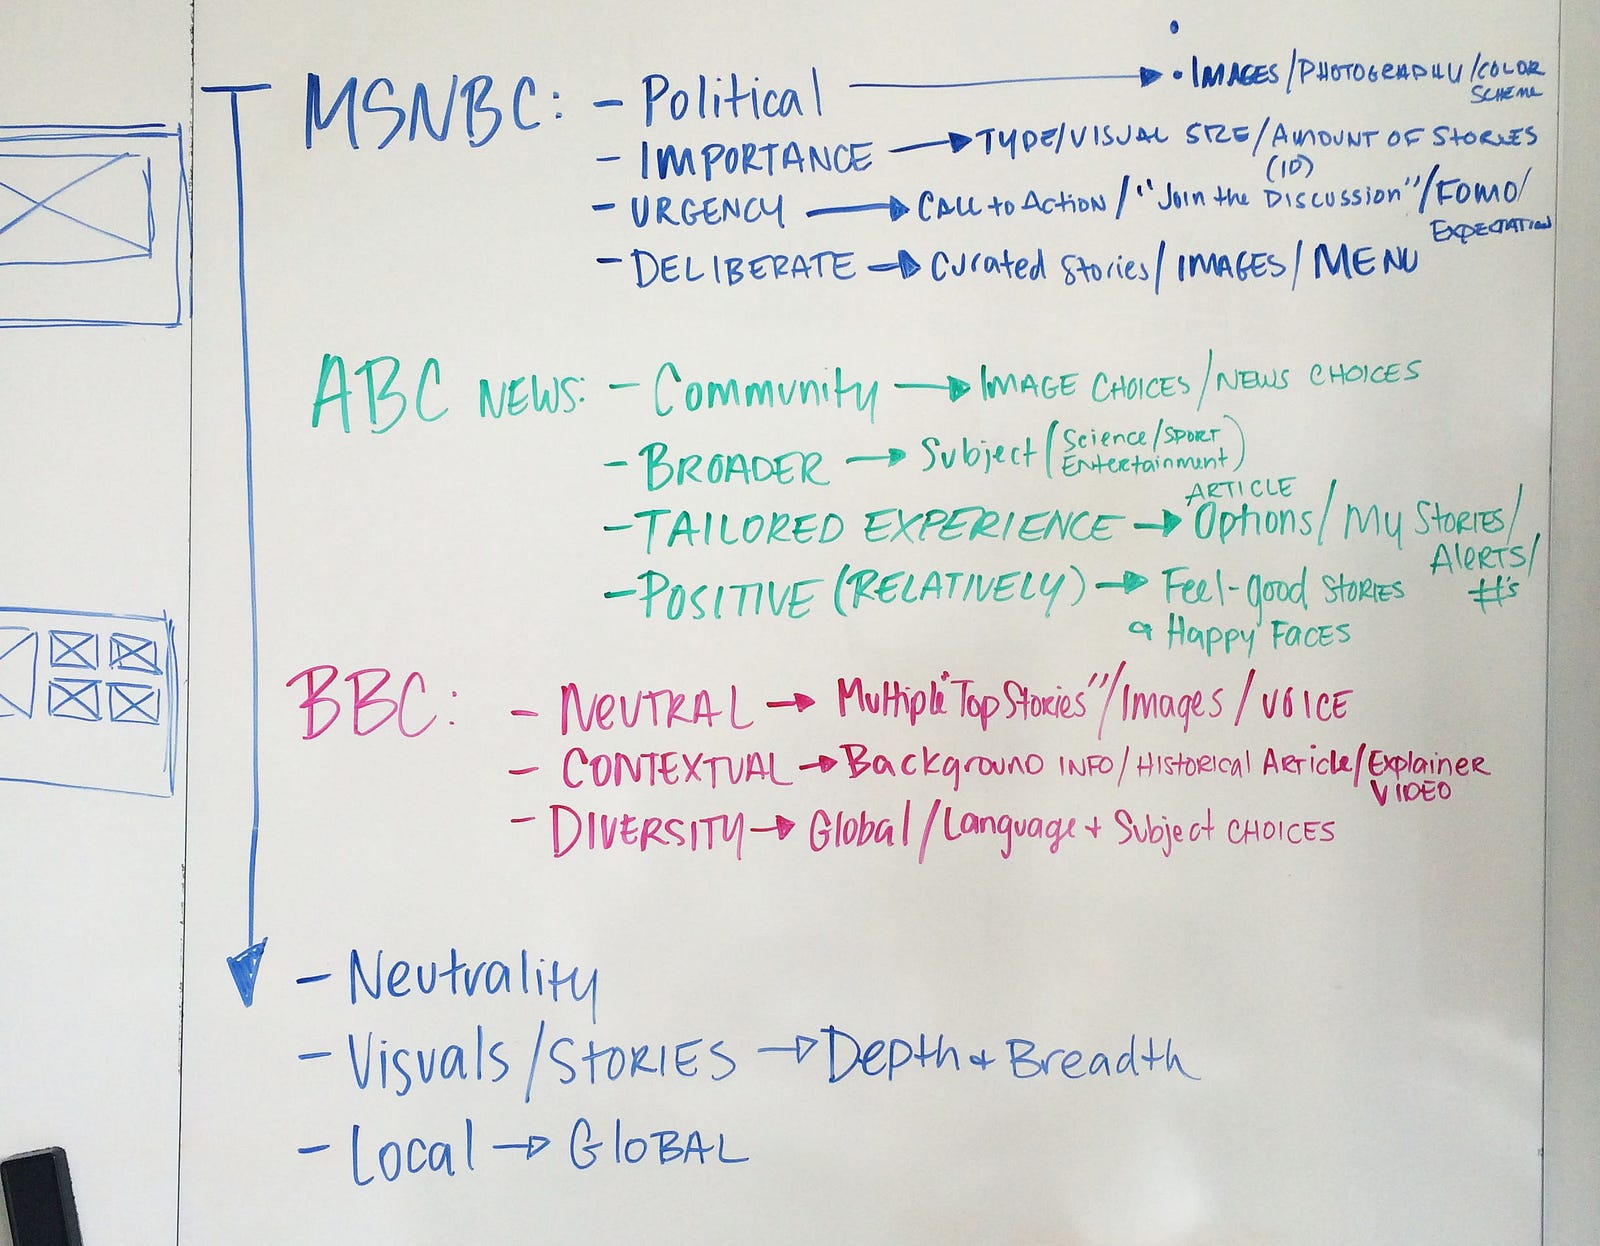 MSNBC: - Political → • IMAGES/PHOTOGRAPHY/COLOR SCHEME
- IMPORTANCE → TYPE/VISUAL SIZE/AMOUNT OF STORIES (10)
- URGENCY → CALL to ACTION/"Join the DISCUSSION"/FOMO/ EXPECTATION
- DELIBERATE → Curated Stories/IMAGES/MENU
ABC NEWS: - Community → IMAGE CHOICES/NEWS CHOICES
- BROADER → Subject (Science/SPORT Entertainment)
- TAILORED EXPERIENCE → ARTICLE Options/My STORIES/ AlERTS/ #'s
- POSITIVE (RELATIVELY) → Feel-good STORIES
+ Happy FACES
BBC: - NEUTRAL → Multiple "Top Stories"/Images/VOICE
- CONTEXTUAL → Background INFO/HISTORICAL ARTICLE/Explainer VIDEO
- DIVERSITY → Global/Language + Subject CHOICES
- Neutrality
- Visuals/STORIES → Depth + Breadth
- Local → GLOBAL